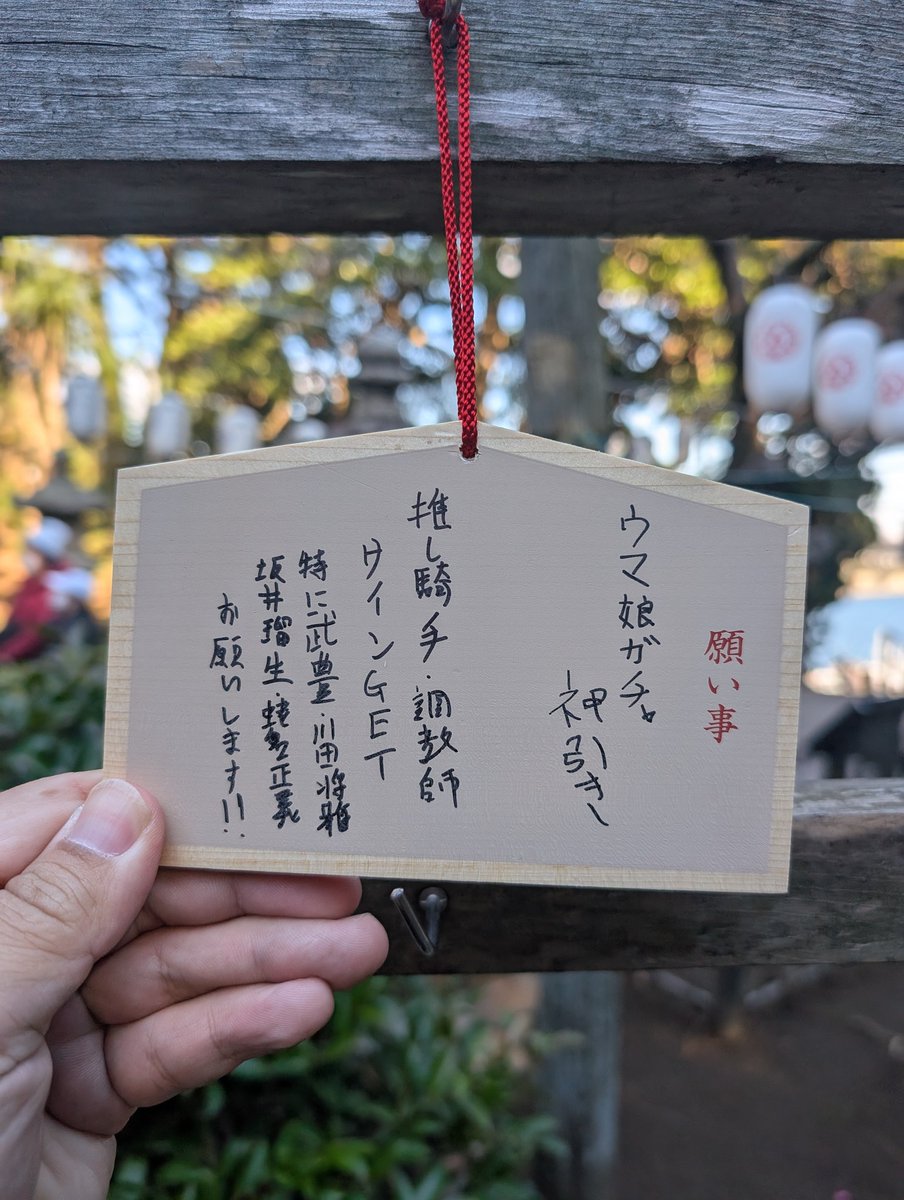 願い事
ウマ娘ガチャ
神引き〜
推し騎手・調教師
サインGET
特に武豊・川田将雅
坂井瑠生・蛯名正義
お願いします!!